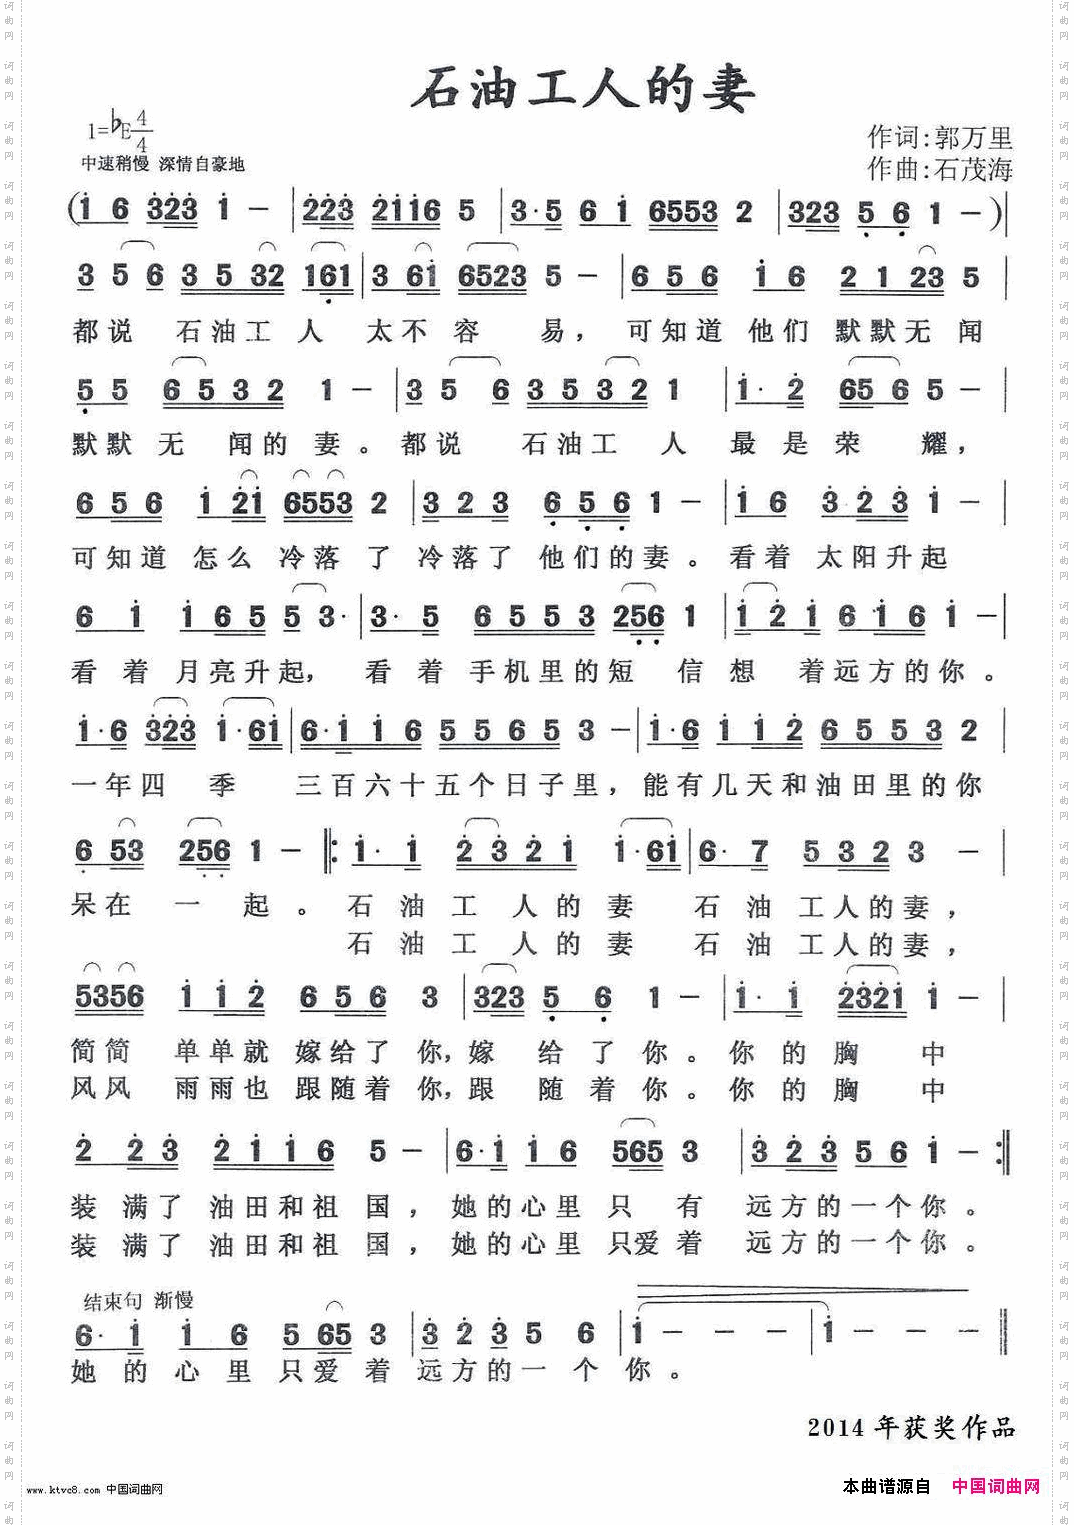 石油工人的妻
1=♭E 4/4
作词:郭万里
中速稍慢 深情自豪地
作曲:石茂海
(i 6 323 i － | 223 2ii6 5 | 3·5 6 i 6553 2 | 323 5 6 1 －)|
3 5 6 3 5 32 161 | 3 6i 6523 5 － | 6 5 6 i 6 2 1 23 5 |
都说 石油工 人 太不 容 易, 可知道 他们 默默无 闻
5 5 6 5 3 2 1 － | 3 5 6 3 5 3 2 1 | i· 2 65 6 5 － |
默默 无 闻的 妻。都说 石油工 人 最 是 荣 耀,
6 5 6 i 2i 6553 2 | 3 2 3 6 5 6 1 － | i 6 3 2 3 i － |
可知道 怎么 冷落 了 冷落了 他们的妻。看着 太阳升起
6 i i 6 5 5 3· | 3· 5 6 5 5 3 256 1 | i 2 i 6 i 6 i －|
看 着 月亮升起, 看 着 手机里的短 信想 着远方的你。
i·6 323 i·6i | 6·i i 6 5 5 6 5 3 － | i·6 i i 2 6 5 5 3 2 |
一年四 季 三百六十五个日子里,能有几天和油田里的你
6 53 256 1 － ‖: i· i 2 3 2 1 i·6i | 6· 7 5 3 2 3 － |
呆在 一 起。石 油 工 人的 妻 石 油 工人的妻,
石 油 工 人的 妻 石 油 工人的妻,
5356 i i 2 6 5 6 3 | 323 5 6 1 － | i· i 2321 i － |
简简 单单就 嫁给了 你,嫁 给 了 你。你 的 胸 中
风风 雨雨也 跟随着 你,跟 随 着 你。你 的 胸 中
2 2 3 2 i i 6 5 － | 6·i i 6 565 3 | 3 2 3 5 6 i － :‖
装 满了 油田和祖 国,她的心里 只 有 远方的一个你。
装 满了 油田和祖 国,她的心里 只爱着 远方的一个你。
结束句 渐慢
6· i i 6 5 65 3 | 3 2 3 5 6 | i － － － | i － － － ‖
她 的 心 里 只爱 着 远方的一 个 你。
2014 年获奖作品
www.ktvc8.com 中国词曲网
本曲谱源自 中国词曲网